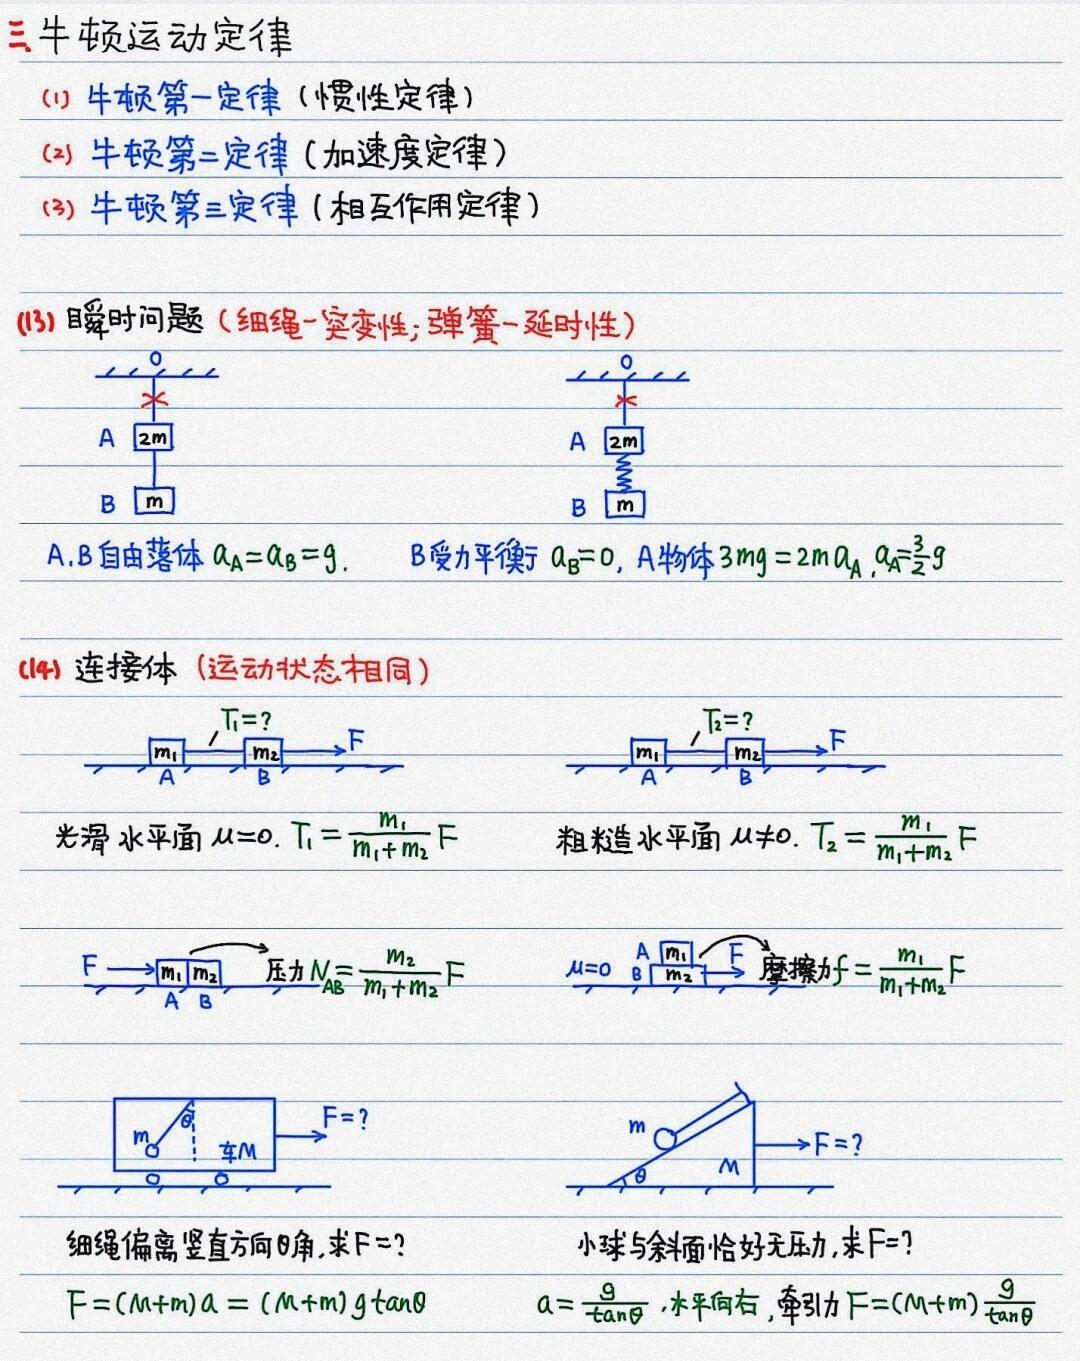 三、牛顿运动定律
(1) 牛顿第一定律（惯性定律）
(2) 牛顿第二定律（加速度定律）
(3) 牛顿第三定律（相互作用定律）
(13) 瞬时问题（细绳-突变性; 弹簧-延时性）
O O
A 2m A 2m
B m B m
A.B自由落体 a_A=a_B=g. B受力平衡 a_B=0, A物体 3mg=2ma_A, a_A=3/2 g
(14) 连接体（运动状态相同）
T₁=? T₂=?
m₁ m₂ F m₁ m₂ F
A B A B
光滑水平面 μ=0. T₁=m₁/(m₁+m₂) F 粗糙水平面 μ≠0. T₂=m₁/(m₁+m₂) F
F m₁ m₂ 压力 N_AB=m₂/(m₁+m₂) F μ=0 A m₁ B m₂ F 摩擦力 f=m₁/(m₁+m₂) F
A B
θ m 车M F=? m θ M F=?
细绳偏离竖直方向θ角,求F=? 小球与斜面恰好无压力,求F=?
F=(M+m)a=(M+m)gtanθ a=g/tanθ .水平向右,牵引力 F=(M+m) g/tanθ